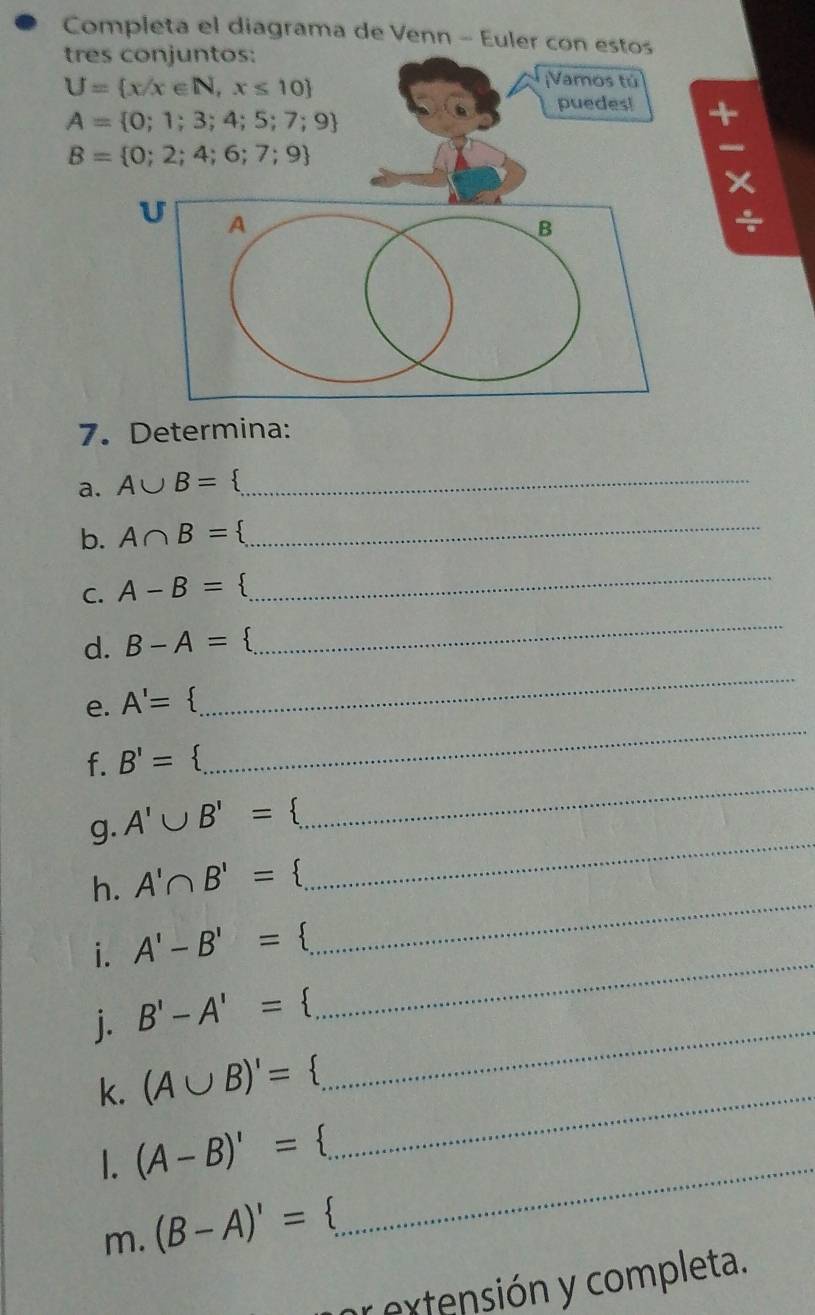 Completa el diagrama de Venn - Euler con estos
tres conjuntos:
U = {x/x ∈ N, x ≤ 10}
A = {0; 1; 3; 4; 5; 7; 9}
B = {0; 2; 4; 6; 7; 9}
¡Vamos tú
puedes!
+
−
×
÷
U
A
B
7. Determina:
a. A ∪ B = {
b. A ∩ B = {
c. A − B = {
d. B − A = {
e. A' = {
f. B' = {
g. A' ∪ B' = {
h. A' ∩ B' = {
i. A' − B' = {
j. B' − A' = {
k. (A ∪ B)' = {
l. (A − B)' = {
m. (B − A)' = {
extensión y completa.